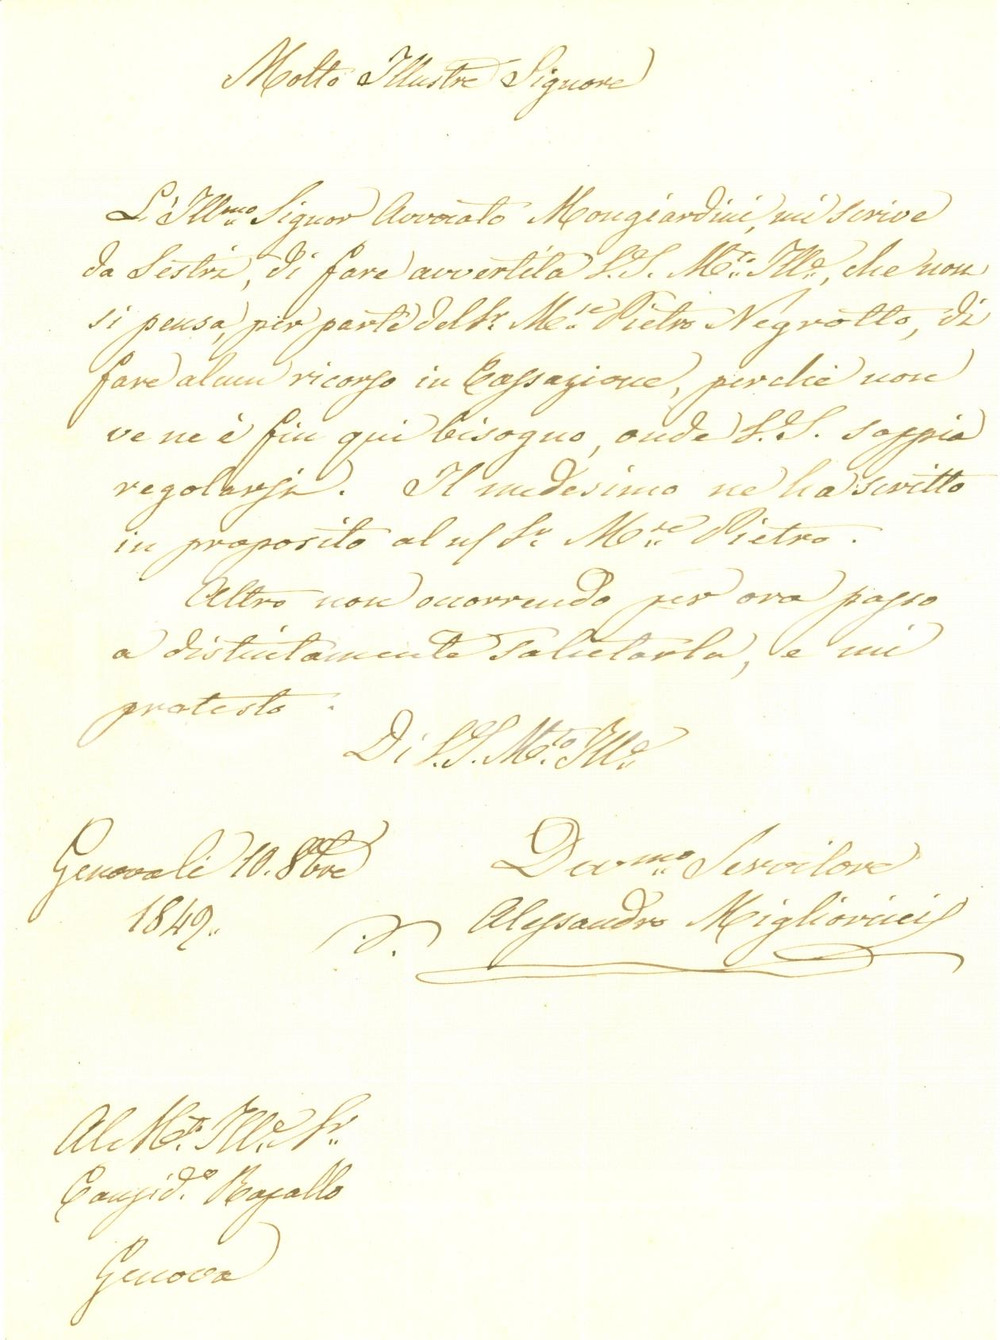 Molto Illustre Signore
L'Ill.mo Signor Avvocato Mongiardini, mi scrive
da Sestri, di fare avvertita V.S. M.to Ill.e, che non
si pensa, per parte del S.r M.se Pietro Negrotto, di
fare alcun ricorso in Cassazione, perchè non
ve ne è fin qui bisogno, onde V.S. sappia
regolarsi. Il medesimo ne ha scritto
in proposito al S.r M.se Pietro.
Altro non occorrendo per ora passo
a distintamente salutarla, e mi
protesto.
Di V.S. M.to Ill.e
Genova li 10. 8bre
1849.
Dev.mo Servitore
Alessandro Migliorini
Al M.to Ill.e S.r
Causid.o Rapallo
Genova